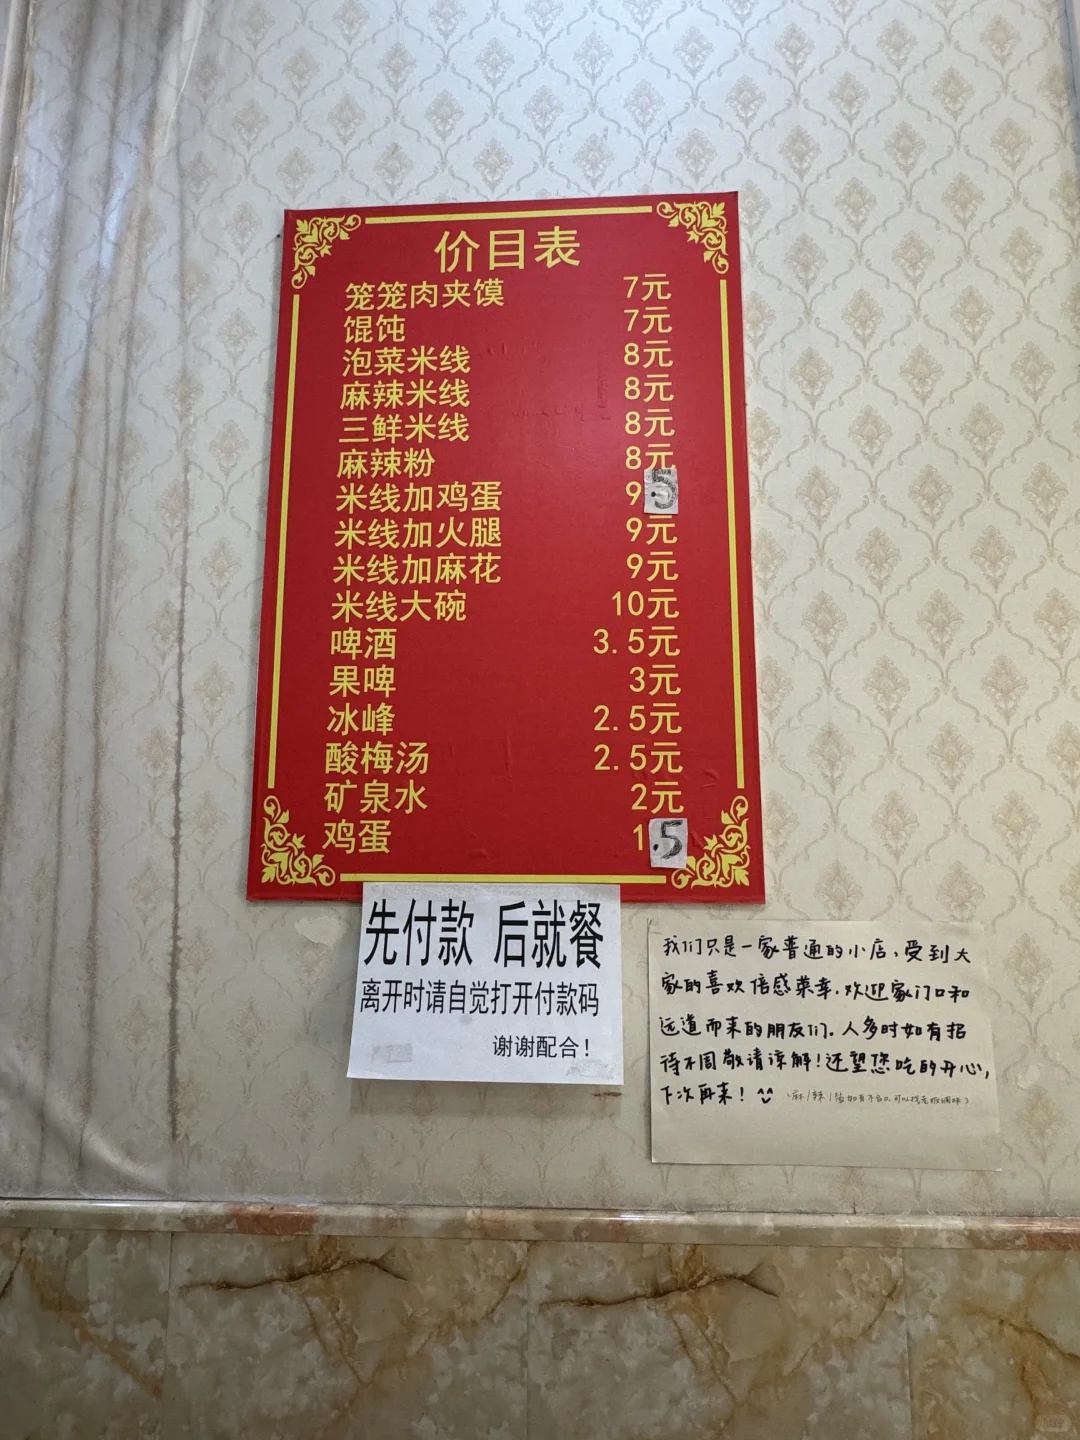 价目表
笼笼肉夹馍 7元
馄饨 7元
泡菜米线 8元
麻辣米线 8元
三鲜米线 8元
麻辣粉 8元
米线加鸡蛋 9.5
米线加火腿 9元
米线加麻花 9元
米线大碗 10元
啤酒 3.5元
果啤 3元
冰峰 2.5元
酸梅汤 2.5元
矿泉水 2元
鸡蛋 1.5
先付款 后就餐
离开时请自觉打开付款码
谢谢配合!
我们只是一家普通的小店,受到大
家的喜欢倍感荣幸.欢迎家门口和
远道而来的朋友们.人多时如有招
待不周敬请谅解!还望您吃的开心,
下次再来!